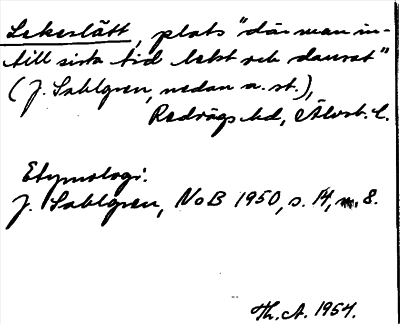 Lekeslätt, plats "där man in-
till sista tid lekt och dansat"
(J. Sahlgren, nedan a. st.),
Redvägs hd, Älvsb. l.
Etymologi.
J. Sahlgren, NoB 1950, s. 14, n. 8.
Th. A. 1954.